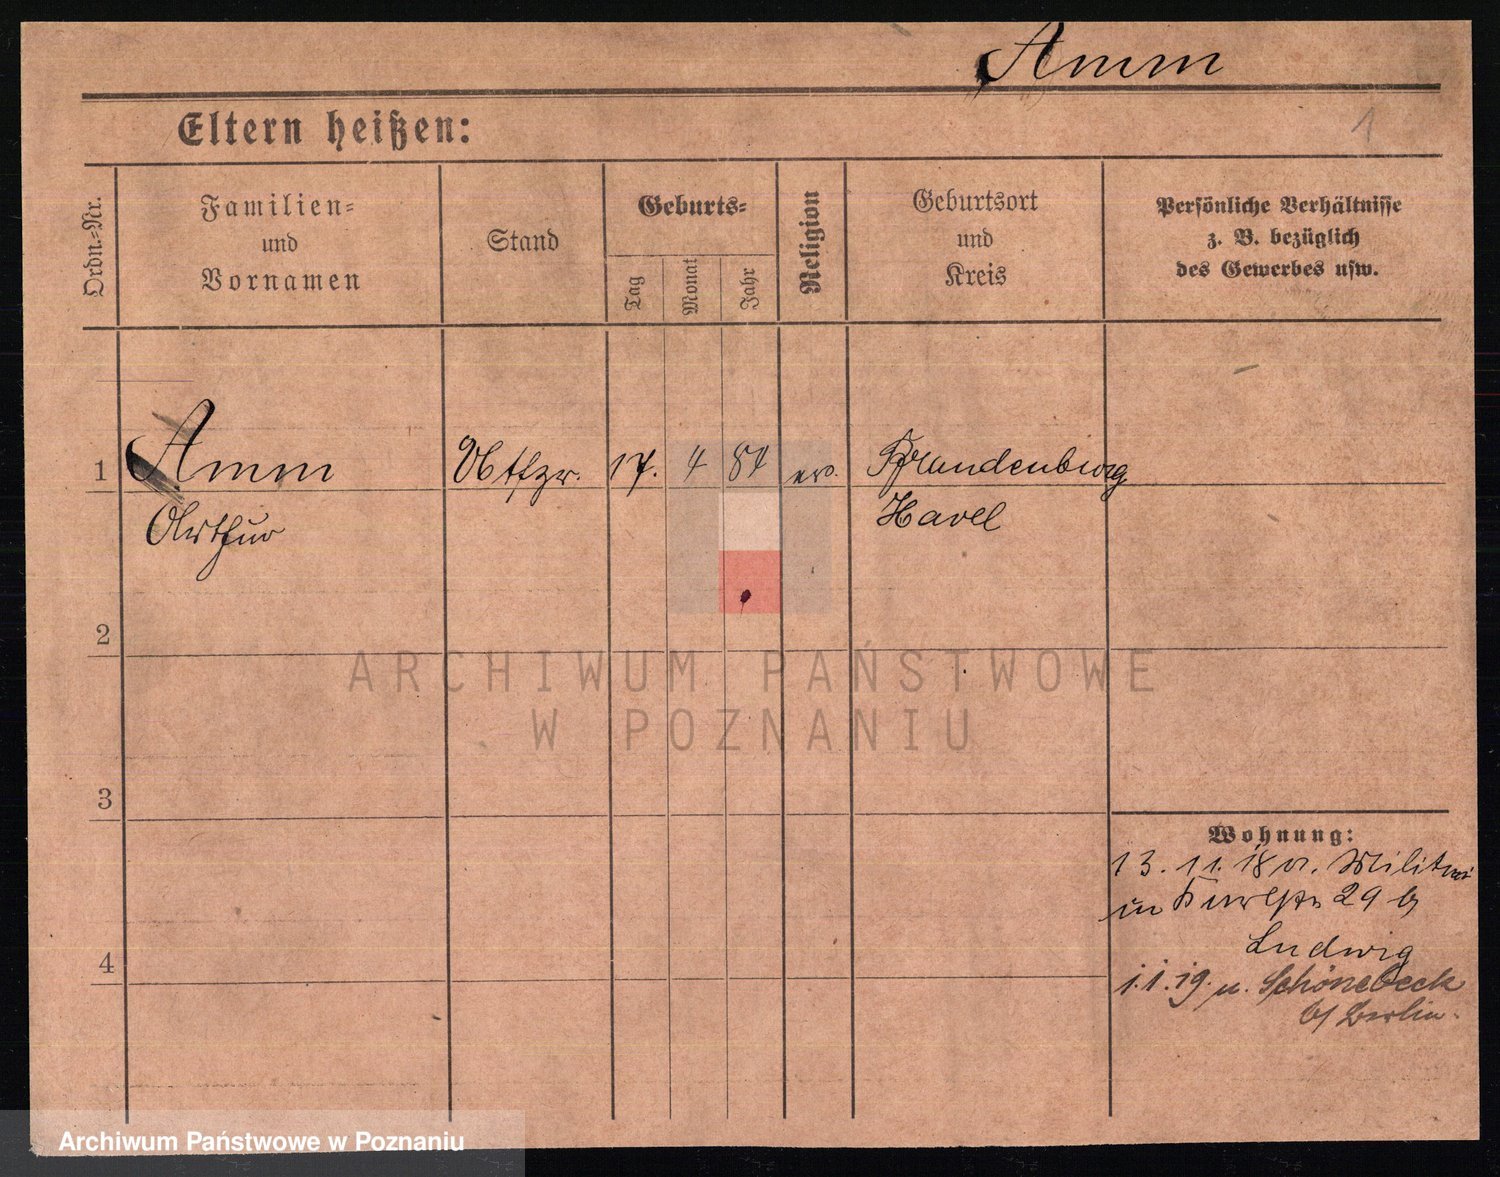 Amm
Eltern heißen:
1
Ordn.-Nr.
Familien-
und
Vornamen
Stand
Geburts-
Tag
Monat
Jahr
Religion
Geburtsort
und
Kreis
Persönliche Verhältnisse
z. B. bezüglich
des Gewerbes usw.
1
Amm
17.
4
84
ev.
Brandenburg
Arthur
Havel
2
ARCHIWUM PAŃSTWOWE
W POZNANIU
3
Wohnung:
13. 11. 18 v. Militär
in 29 b/
Ludwig
4
1. 1. 19. n. Schönebeck
b/ Berlin.
Archiwum Państwowe w Poznaniu